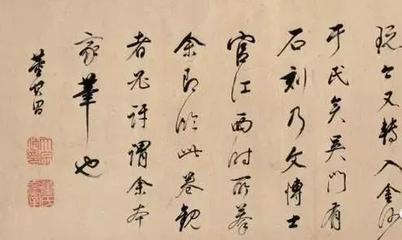 又轉入金沙
于氏矣吳門有
石刻乃文博士
官江西時所摹
余即臨此卷觀
者訝謂余本
家筆也
董其昌